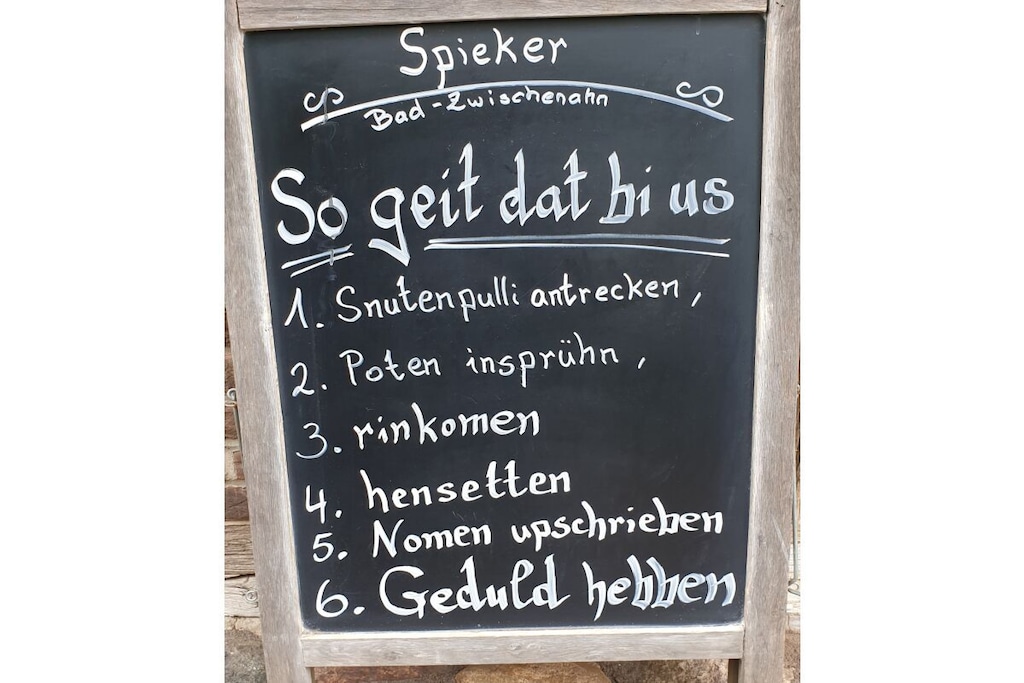 Spieker
Bad-Zwischenahn
So geit dat bi us
1. Snutenpulli antrecken,
2. Poten insprühn,
3. rinkomen
4. hensetten
5. Nomen upschrieben
6. Geduld hebben